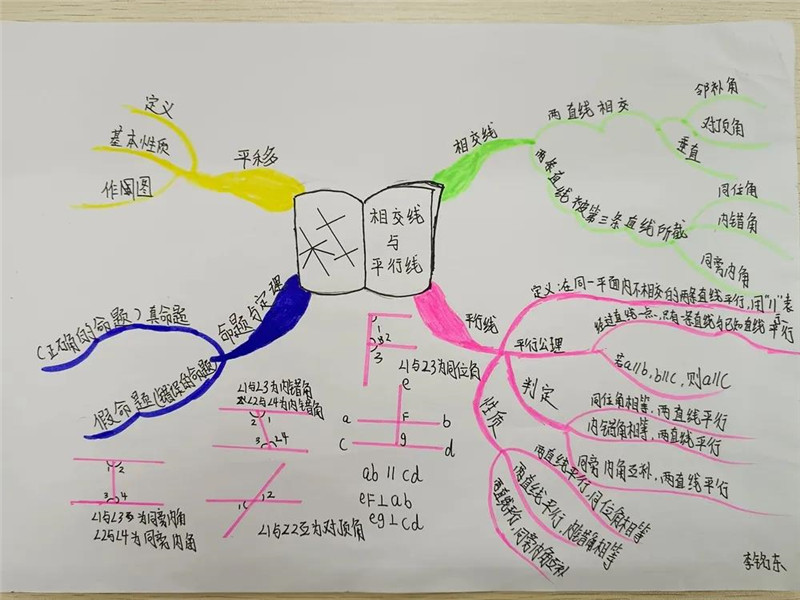 相交线
与
平行线
平移
定义
基本性质
作图
相交线
两直线相交
邻补角
对顶角
垂直
两条直线被第三条直线所截
同位角
内错角
同旁内角
平行线
定义:在同一平面内不相交的两条直线平行,用"//"表示
平行公理
经过直线一点,只有一条直线与已知直线平行
若a//b,b//c,则a//c
判定
同位角相等,两直线平行
内错角相等,两直线平行
同旁内角互补,两直线平行
性质
两直线平行,同位角相等
两直线平行,内错角相等
两直线平行,同旁内角互补
命题与定理
(正确的命题)真命题
假命题(错误的命题)
1
2
3
∠1与∠3为同位角
e
a
F
b
c
g
d
ab // cd
eF⊥ab
eg⊥cd
∠1与∠3为内错角
∠2与∠4为内错角
2
1
3
4
1
2
3
4
∠1与∠3为同旁内角
∠2与∠4为同旁内角
1
2
∠1与∠2互为对顶角
李铭东